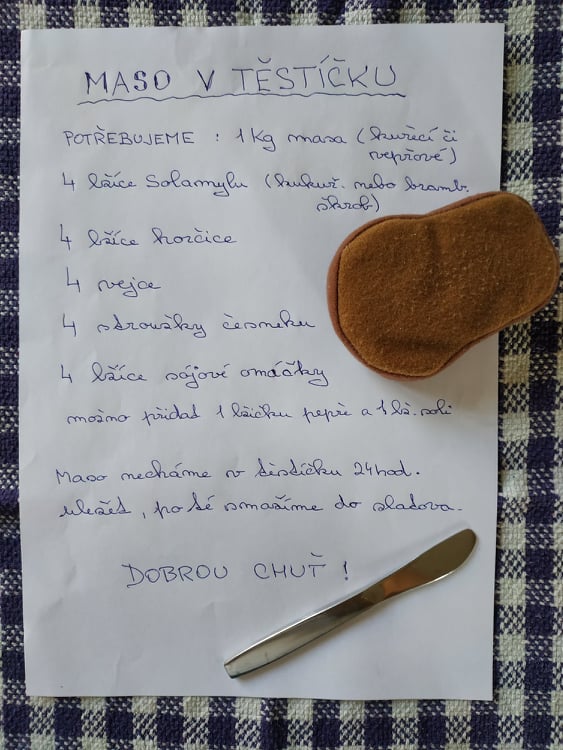 MASO V TĚSTÍČKU
POTŘEBUJEME : 1 Kg masa (kuřecí či
vepřové)
4 lžíce Solamylu (kukuř. nebo bramb.
škrob)
4 lžíce hořčice
4 vejce
4 stroužky česneku
4 lžíce sójové omáčky
možno přidat 1 lžičku pepře a 1 lž. soli
Maso necháme v těstíčku 24 hod.
uležet, po té smažíme do zlatova.
DOBROU CHUŤ !